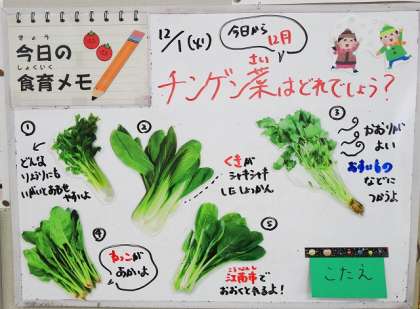 きょう
今日の
しょくいく
食育メモ
12/1(火)
今日から
12月
さい
チンゲン菜はどれでしょう?
①
どんな
りょうりにも
いがいとあわせ
やすいよ
②
くきが
シャキシャキ
した しょっかん
③
かおりが
よい
おすいもの
などに
つかうよ
④
ねっこが
あかいよ
⑤
こうなんし
江南市で
おおくとれるよ!
こたえ